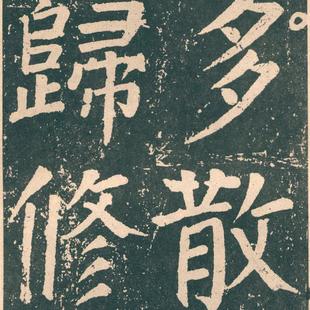 多散
歸修